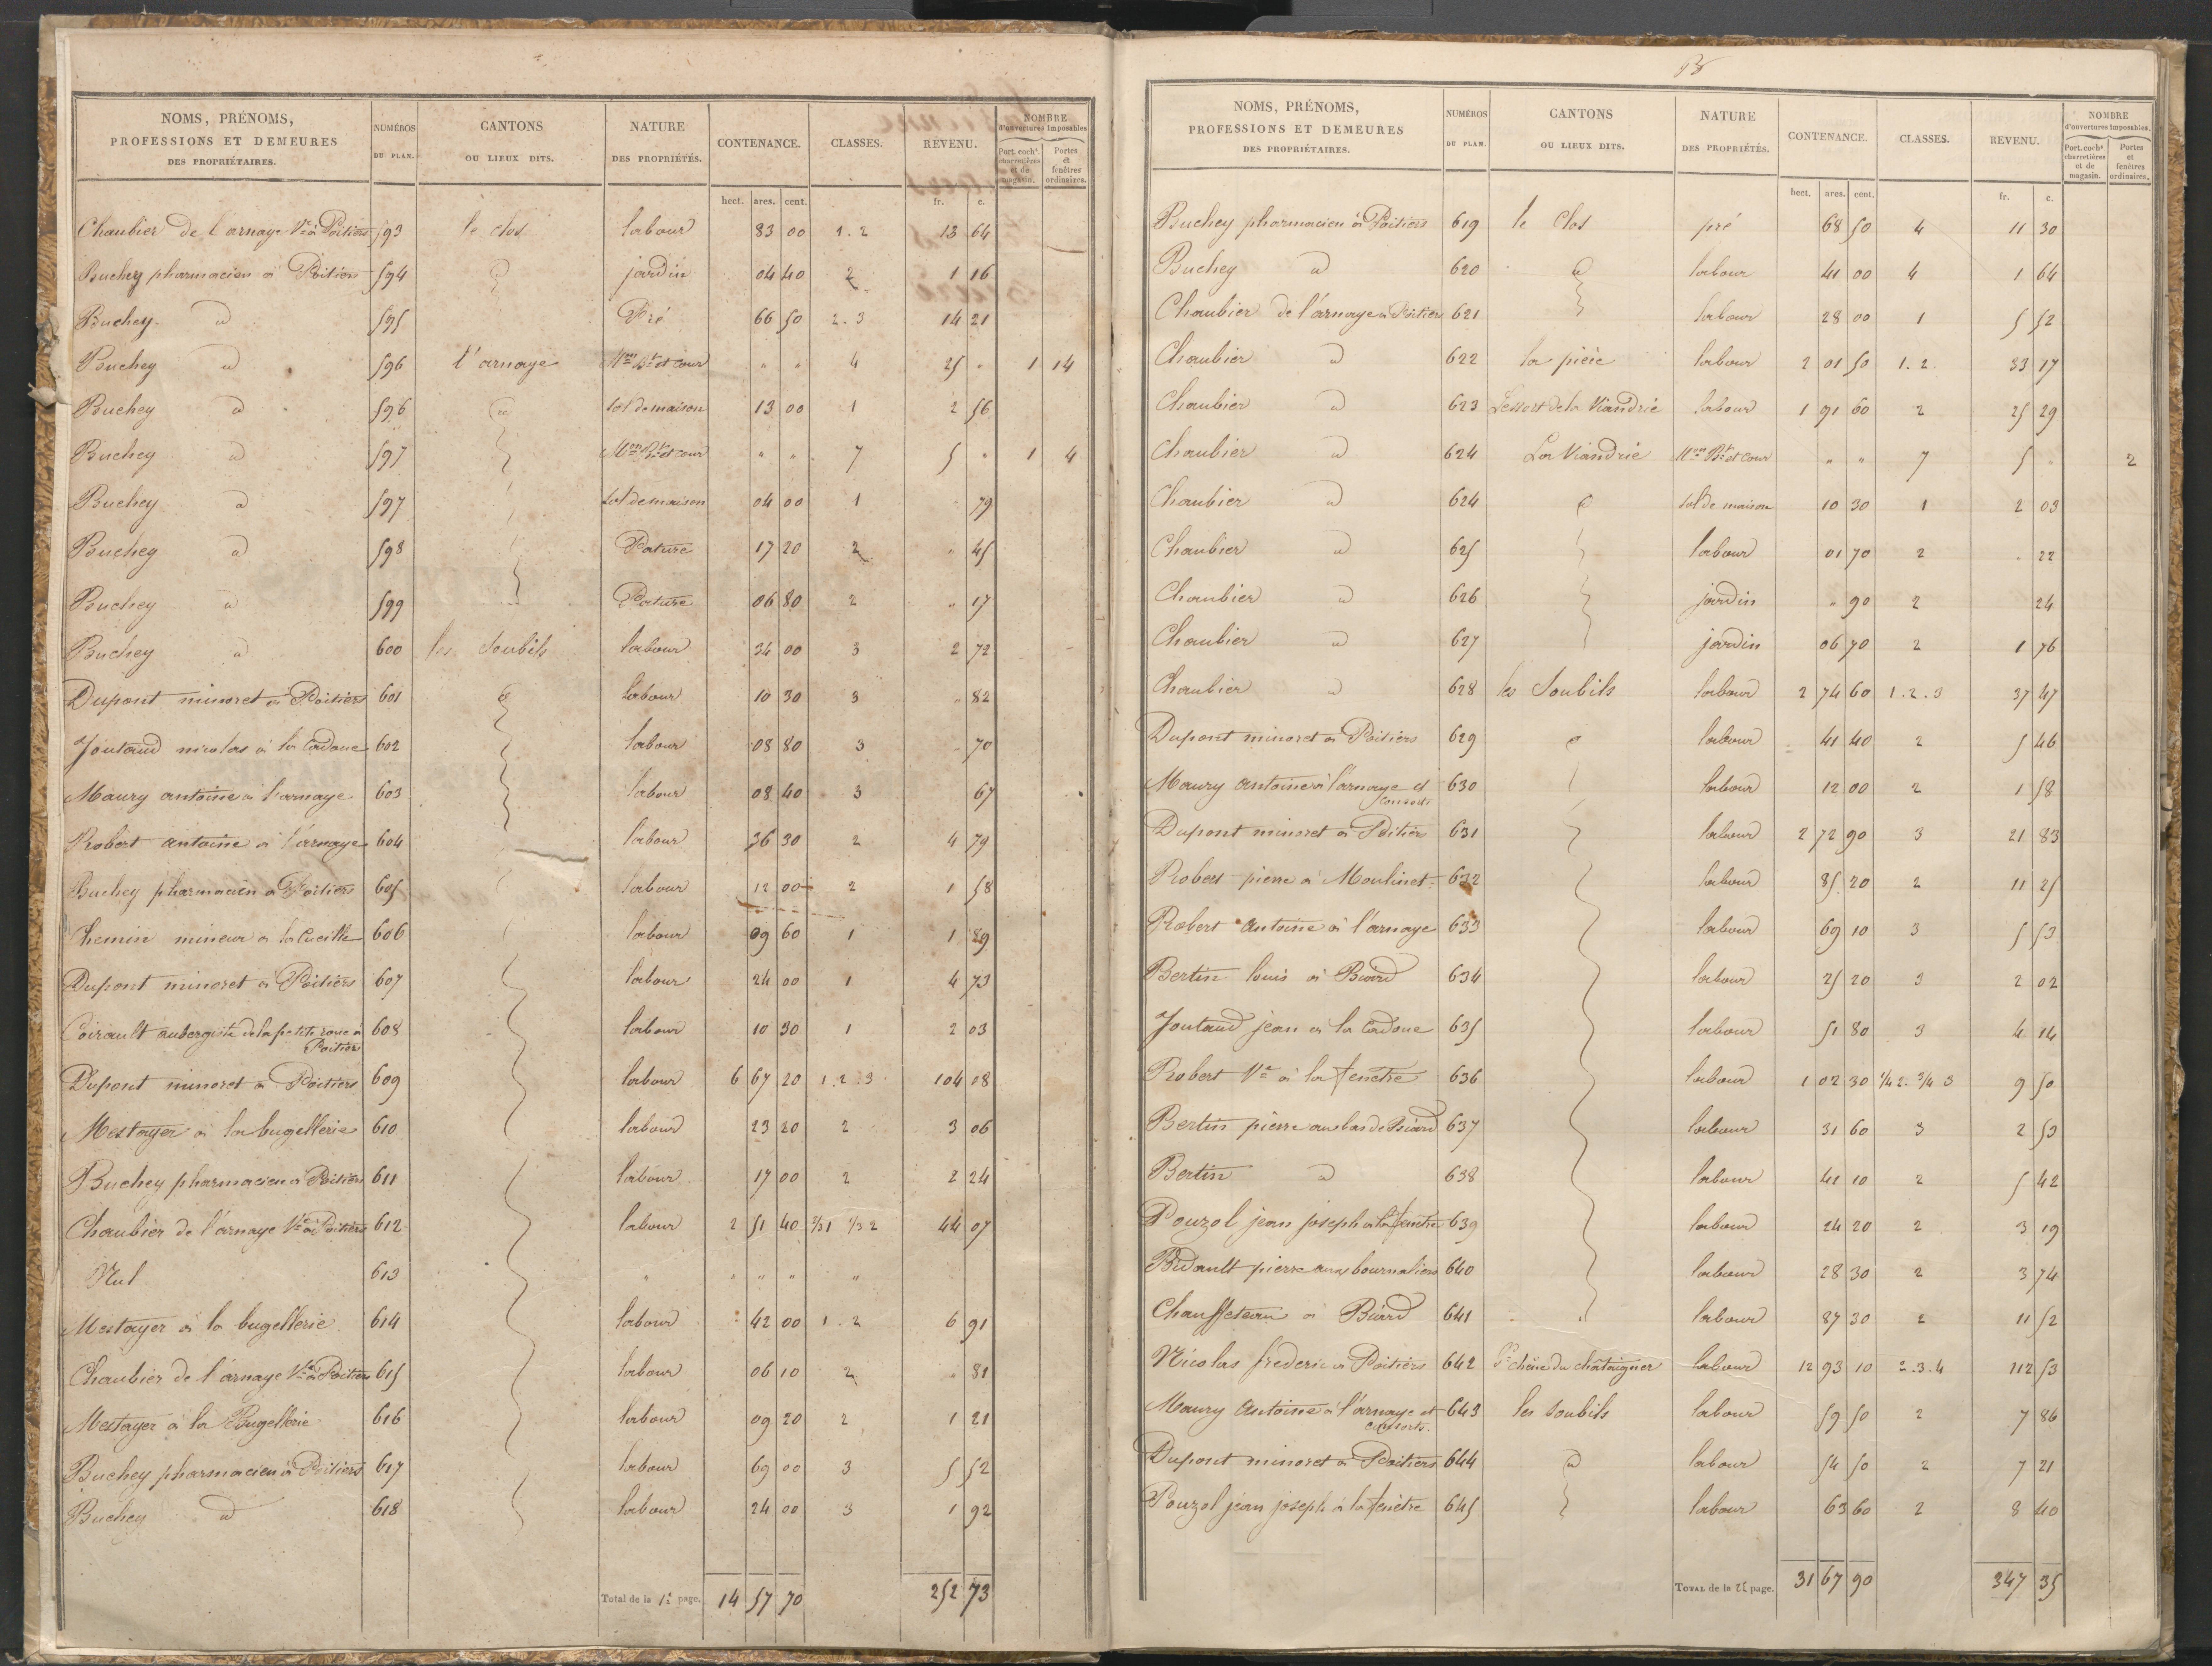 NOMS, PRÉNOMS, PROFESSIONS ET DEMEURES DES PROPRIÉTAIRES. NUMÉROS DU PLAN. CANTONS OU LIEUX DITS. NATURE DES PROPRIÉTÉS. CONTENANCE. CLASSES. REVENU. NOMBRE d'ouvertures imposables.
Port. coch.s charretières et de magasin. Portes et fenêtres ordinaires.
hect. ares. cent. fr. c.
Chaubier de l'arnaye Ve à Poitiers 593 le clos labour 83 00 1.2 13 64
Buchey pharmacien à Poitiers 594 d jardin 04 40 2 1 16
Buchey d 595 Pré 66 50 2.3 14 21
Buchey d 596 l'arnaye Mon Bt et cour " " 4 25 " 1 14
Buchey d 596 d sol de maison 13 00 1 2 56
Buchey d 597 Mon Bt et cour " " 7 5 " 1 4
Buchey d 597 sol de maison 04 00 1 79
Buchey d 598 Pature 17 20 2 " 45
Buchey d 599 Pature 06 80 2 " 17
Buchey d 600 les Soubils labour 34 00 3 2 72
Dupont minoret à Poitiers 601 d labour 10 30 3 " 82
Joutaud nicolas à la Cadoue 602 labour 08 80 3 " 70
Maury antoine à l'arnaye 603 labour 08 40 3 67
Robert antoine à l'arnaye 604 labour 36 30 2 4 79
Buchey pharmacien à Poitiers 605 labour 12 00 2 1 58
Chemin mineur à la Cueille 606 labour 09 60 1 1 89
Dupont minoret à Poitiers 607 labour 24 00 1 4 73
Coirault aubergiste de la petite roue à Poitiers 608 labour 10 30 1 2 03
Dupont minoret à Poitiers 609 labour 6 67 20 1.2.3 104 08
Mestayer à la bugellerie 610 labour 23 20 2 3 06
Buchey pharmacien à Poitiers 611 labour 17 00 2 2 24
Chaubier de l'arnaye Ve à Poitiers 612 labour 2 51 40 2/3 1 1/3 2 44 07
Nul 613 " " " " "
Mestayer à la bugellerie 614 labour 42 00 1.2 6 91
Chaubier de l'arnaye Ve à Poitiers 615 labour 06 10 2 " 81
Mestayer à la Bugellerie 616 labour 09 20 2 1 21
Buchey pharmacien à Poitiers 617 labour 69 00 3 5 52
Buchey d 618 labour 24 00 3 1 92
Total de la 1e page. 14 57 70 252 73
NOMS, PRÉNOMS, PROFESSIONS ET DEMEURES DES PROPRIÉTAIRES. NUMÉROS DU PLAN. CANTONS OU LIEUX DITS. NATURE DES PROPRIÉTÉS. CONTENANCE. CLASSES. REVENU. NOMBRE d'ouvertures imposables.
Port. coch.s charretières et de magasin. Portes et fenêtres ordinaires.
hect. ares. cent. fr. c.
Buchey pharmacien à Poitiers 619 le Clos pré 68 50 4 11 30
Buchey d 620 d labour 41 00 4 1 64
Chaubier de l'arnaye à Poitiers 621 labour 28 00 1 5 52
Chaubier d 622 la pièce labour 2 01 50 1.2. 33 17
Chaubier d 623 de la Viandrie labour 1 91 60 2 25 29
Chaubier d 624 La Viandrie Mon Bt et cour " " 7 5 " 2
Chaubier d 624 d sol de maison 10 30 1 2 03
Chaubier d 625 labour 01 70 2 " 22
Chaubier d 626 jardin " 90 2 24
Chaubier d 627 jardin 06 70 2 1 76
Chaubier d 628 les Soubils labour 2 74 60 1.2.3 37 47
Dupont minoret à Poitiers 629 d labour 41 40 2 5 46
Maury antoine à l'arnaye et consorts 630 labour 12 00 2 1 58
Dupont minoret à Poitiers 631 labour 2 72 90 3 21 83
Robert pierre à Moulinet 632 labour 85 20 2 11 25
Robert Antoine à l'arnaye 633 labour 69 10 3 5 53
Bertin louis à Biard 634 labour 25 20 3 2 02
Joutaud jean à la Cadoue 635 labour 51 80 3 4 14
Robert Ve à la fenêtre 636 labour 1 02 30 1/4 2. 3/4 3 9 50
Bertin pierre au bas de Biard 637 labour 31 60 3 2 53
Bertin d 638 labour 41 10 2 5 42
Pouzol jean joseph à la fenêtre 639 labour 24 20 2 3 19
Bidault pierre aux bournaliers 640 labour 28 30 2 3 74
Chauffeteau à Biard 641 labour 87 30 2 11 52
Nicolas frederic à Poitiers 642 chêne du châtaignier labour 12 93 10 2.3.4 112 53
Maury Antoine à l'arnaye et consorts. 643 les Soubils labour 59 50 2 7 86
Dupont minoret à Poitiers 644 d labour 54 50 2 7 21
Pouzol jean joseph à la fenêtre 645 labour 63 60 2 8 40
TOTAL de la 2e page. 31 67 90 347 35